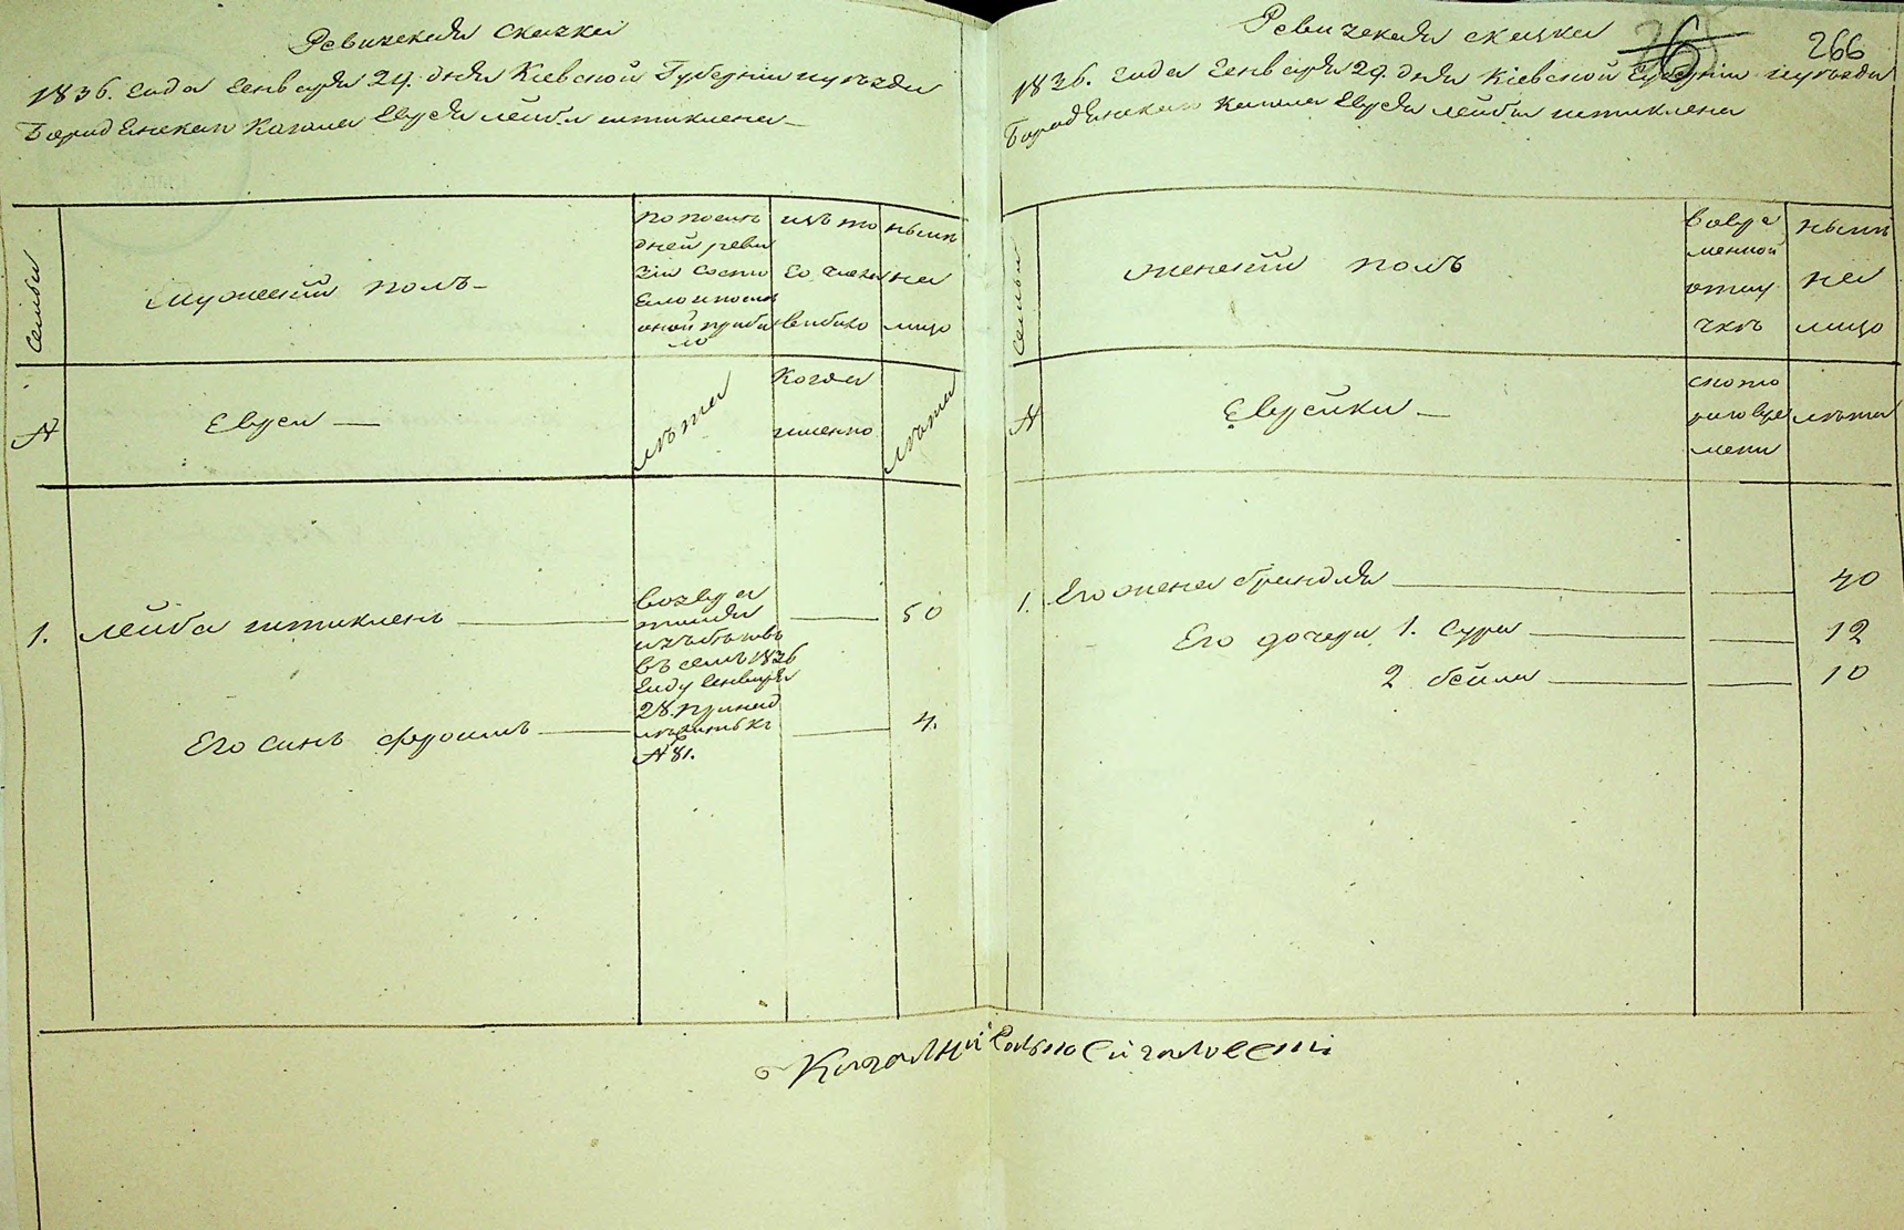 Ревизская сказка
1836. года Генваря 29. дня Кіевской Губерніи и уѣзда
Бородянскаго Кагала Еврея Лейбы Штиклена
Семьи
Мужескій полъ
По послѣдней ревизіи состояло и послѣ оной прибыло
изъ того числа выбыло
нынѣ на лицо
№
Евреи
лѣта
Когда именно
лѣта
1. Лейба Штикленъ 50
возвратился изъ бѣговъ въ семъ 1836 году Генваря 28. принадлежитъ къ № 81.
Его синъ Фроимъ 4.
Ревизская сказка
266
1836. года Генваря 29. дня Кіевской Губерніи и уѣзда
Бородянскаго Кагала Еврея Лейбы Штиклена
Семьи
Женскій полъ
во временной отлучкѣ
нынѣ на лицо
№
Еврейки
с котораго времени
лѣта
1. Его жена Брандля 40
Его дочери 1. Сура 12
2 Бейла 10
Кагалний